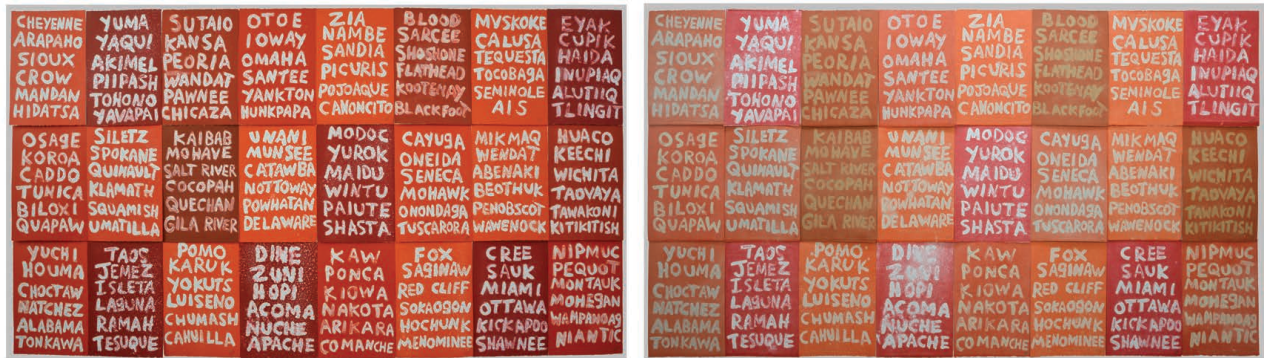 CHEYENNE
ARAPAHO
SIOUX
CROW
MANDAN
HIDATSA
YUMA
YAQUI
AKIMEL
PIIPASH
TOHONO
YAVAPAI
SUTAIO
KANSA
PEORIA
WANDAT
PAWNEE
CHICAZA
OTOE
IOWAY
OMAHA
SANTEE
YANKTON
HUNKPAPA
ZIA
NAMBE
SANDIA
PICURIS
POJOAQUE
CANONCITO
BLOOD
SARCEE
SHOSHONE
FLATHEAD
KOOTENAY
BLACKFOOT
MVSKOKE
CALUSA
TEQUESTA
TOCOBAGA
SEMINOLE
AIS
EYAK
CUPIK
HAIDA
INUPIAQ
ALUTIIQ
TLINGIT
OSAGE
KOROA
CADDO
TUNICA
BILOXI
QUAPAW
SILETZ
SPOKANE
QUINAULT
KLAMATH
SQUAMISH
UMATILLA
KAIBAB
MOHAVE
SALT RIVER
COCOPAH
QUECHAN
GILA RIVER
UNANI
MUNSEE
CATAWBA
NOTTOWAY
POWHATAN
DELAWARE
MODOC
YUROK
MAIDU
WINTU
PAIUTE
SHASTA
CAYUGA
ONEIDA
SENECA
MOHAWK
ONONDAGA
TUSCARORA
MIKMAQ
WENDAT
ABENAKI
BEOTHUK
PENOBSCOT
WAWENOCK
HUACO
KEECHI
WICHITA
TAOVAYA
TAWAKONI
KITIKITISH
YUCHI
HOUMA
CHOCTAW
NATCHEZ
ALABAMA
TONKAWA
TAOS
JEMEZ
ISLETA
LAGUNA
RAMAH
TESUQUE
POMO
KARUK
YOKUTS
LUISENO
CHUMASH
CAHUILLA
DINE
ZUVI
HOPI
ACOMA
NUCHE
APACHE
KAW
PONCA
KIOWA
NAKOTA
ARIKARA
COMANCHE
FOX
SAGINAW
RED CLIFF
SOKAOGON
HOCHUNK
MENOMINEE
CREE
SAUK
MIAMI
OTTAWA
KICKAPOO
SHAWNEE
NIPMUC
PEQUOT
MONTAUK
MOHEGAN
WAMPANOAG
NIANTIC
CHEYENNE
ARAPAHO
SIOUX
CROW
MANDAN
HIDATSA
YUMA
YAQUI
AKIMEL
PIIPASH
TOHONO
YAVAPAI
SUTAIO
KANSA
PEORIA
WANDAT
PAWNEE
CHICAZA
OTOE
IOWAY
OMAHA
SANTEE
YANKTON
HUNKPAPA
ZIA
NAMBE
SANDIA
PICURIS
POJOAQUE
CANONCITO
BLOOD
SARCEE
SHOSHONE
FLATHEAD
KOOTENAY
BLACKFOOT
MVSKOKE
CALUSA
TEQUESTA
TOCOBAGA
SEMINOLE
AIS
EYAK
CUPIK
HAIDA
INUPIAQ
ALUTIIQ
TLINGIT
OSAGE
KOROA
CADDO
TUNICA
BILOXI
QUAPAW
SILETZ
SPOKANE
QUINAULT
KLAMATH
SQUAMISH
UMATILLA
KAIBAB
MOHAVE
SALT RIVER
COCOPAH
QUECHAN
GILA RIVER
UNANI
MUNSEE
CATAWBA
NOTTOWAY
POWHATAN
DELAWARE
MODOC
YUROK
MAIDU
WINTU
PAIUTE
SHASTA
CAYUGA
ONEIDA
SENECA
MOHAWK
ONONDAGA
TUSCARORA
MIKMAQ
WENDAT
ABENAKI
BEOTHUK
PENOBSCOT
WAWENOCK
HUACO
KEECHI
WICHITA
TAOVAYA
TAWAKONI
KITIKITISH
YUCHI
HOUMA
CHOCTAW
NATCHEZ
ALABAMA
TONKAWA
TAOS
JEMEZ
ISLETA
LAGUNA
RAMAH
TESUQUE
POMO
KARUK
YOKUTS
LUISENO
CHUMASH
CAHUILLA
DINE
ZUVI
HOPI
ACOMA
NUCHE
APACHE
KAW
PONCA
KIOWA
NAKOTA
ARIKARA
COMANCHE
FOX
SAGINAW
RED CLIFF
SOKAOGON
HOCHUNK
MENOMINEE
CREE
SAUK
MIAMI
OTTAWA
KICKAPOO
SHAWNEE
NIPMUC
PEQUOT
MONTAUK
MOHEGAN
WAMPANOAG
NIANTIC